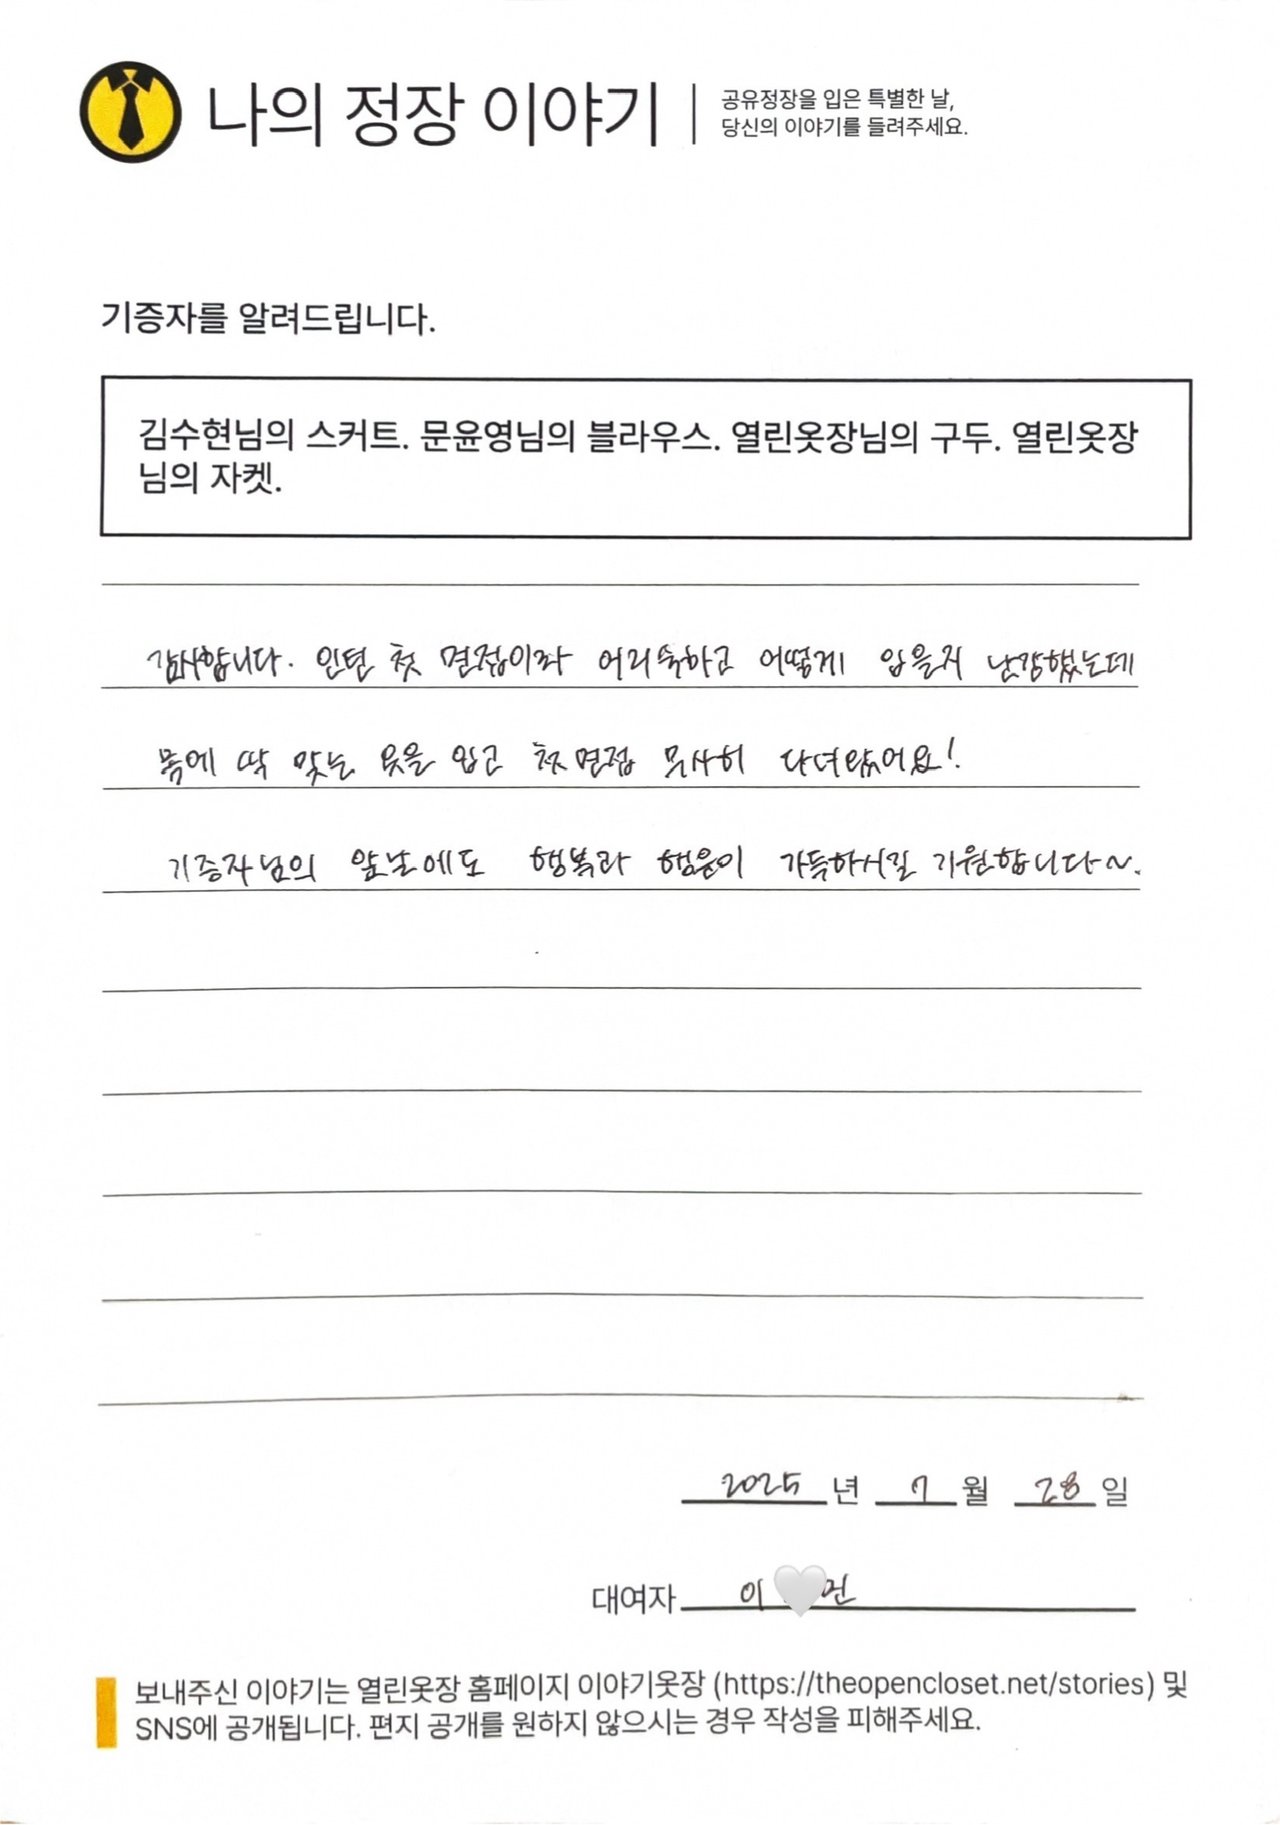 나의 정장 이야기
공유정장을 입은 특별한 날,
당신의 이야기를 들려주세요.
기증자를 알려드립니다.
김수현님의 스커트. 문윤영님의 블라우스. 열린옷장님의 구두. 열린옷장
님의 자켓.
감사합니다. 인턴 첫 면접이라 어리숙하고 어떻게 입을지 난감했는데
몸에 딱 맞는 옷을 입고 첫 면접 무사히 다녀왔어요!
기증자님의 앞날에도 행복과 행운이 가득하시길 기원합니다~.
2025 년 7 월 28 일
대여자 이 🤍언
보내주신 이야기는 열린옷장 홈페이지 이야기옷장 (https://theopencloset.net/stories) 및
SNS에 공개됩니다. 편지 공개를 원하지 않으시는 경우 작성을 피해주세요.